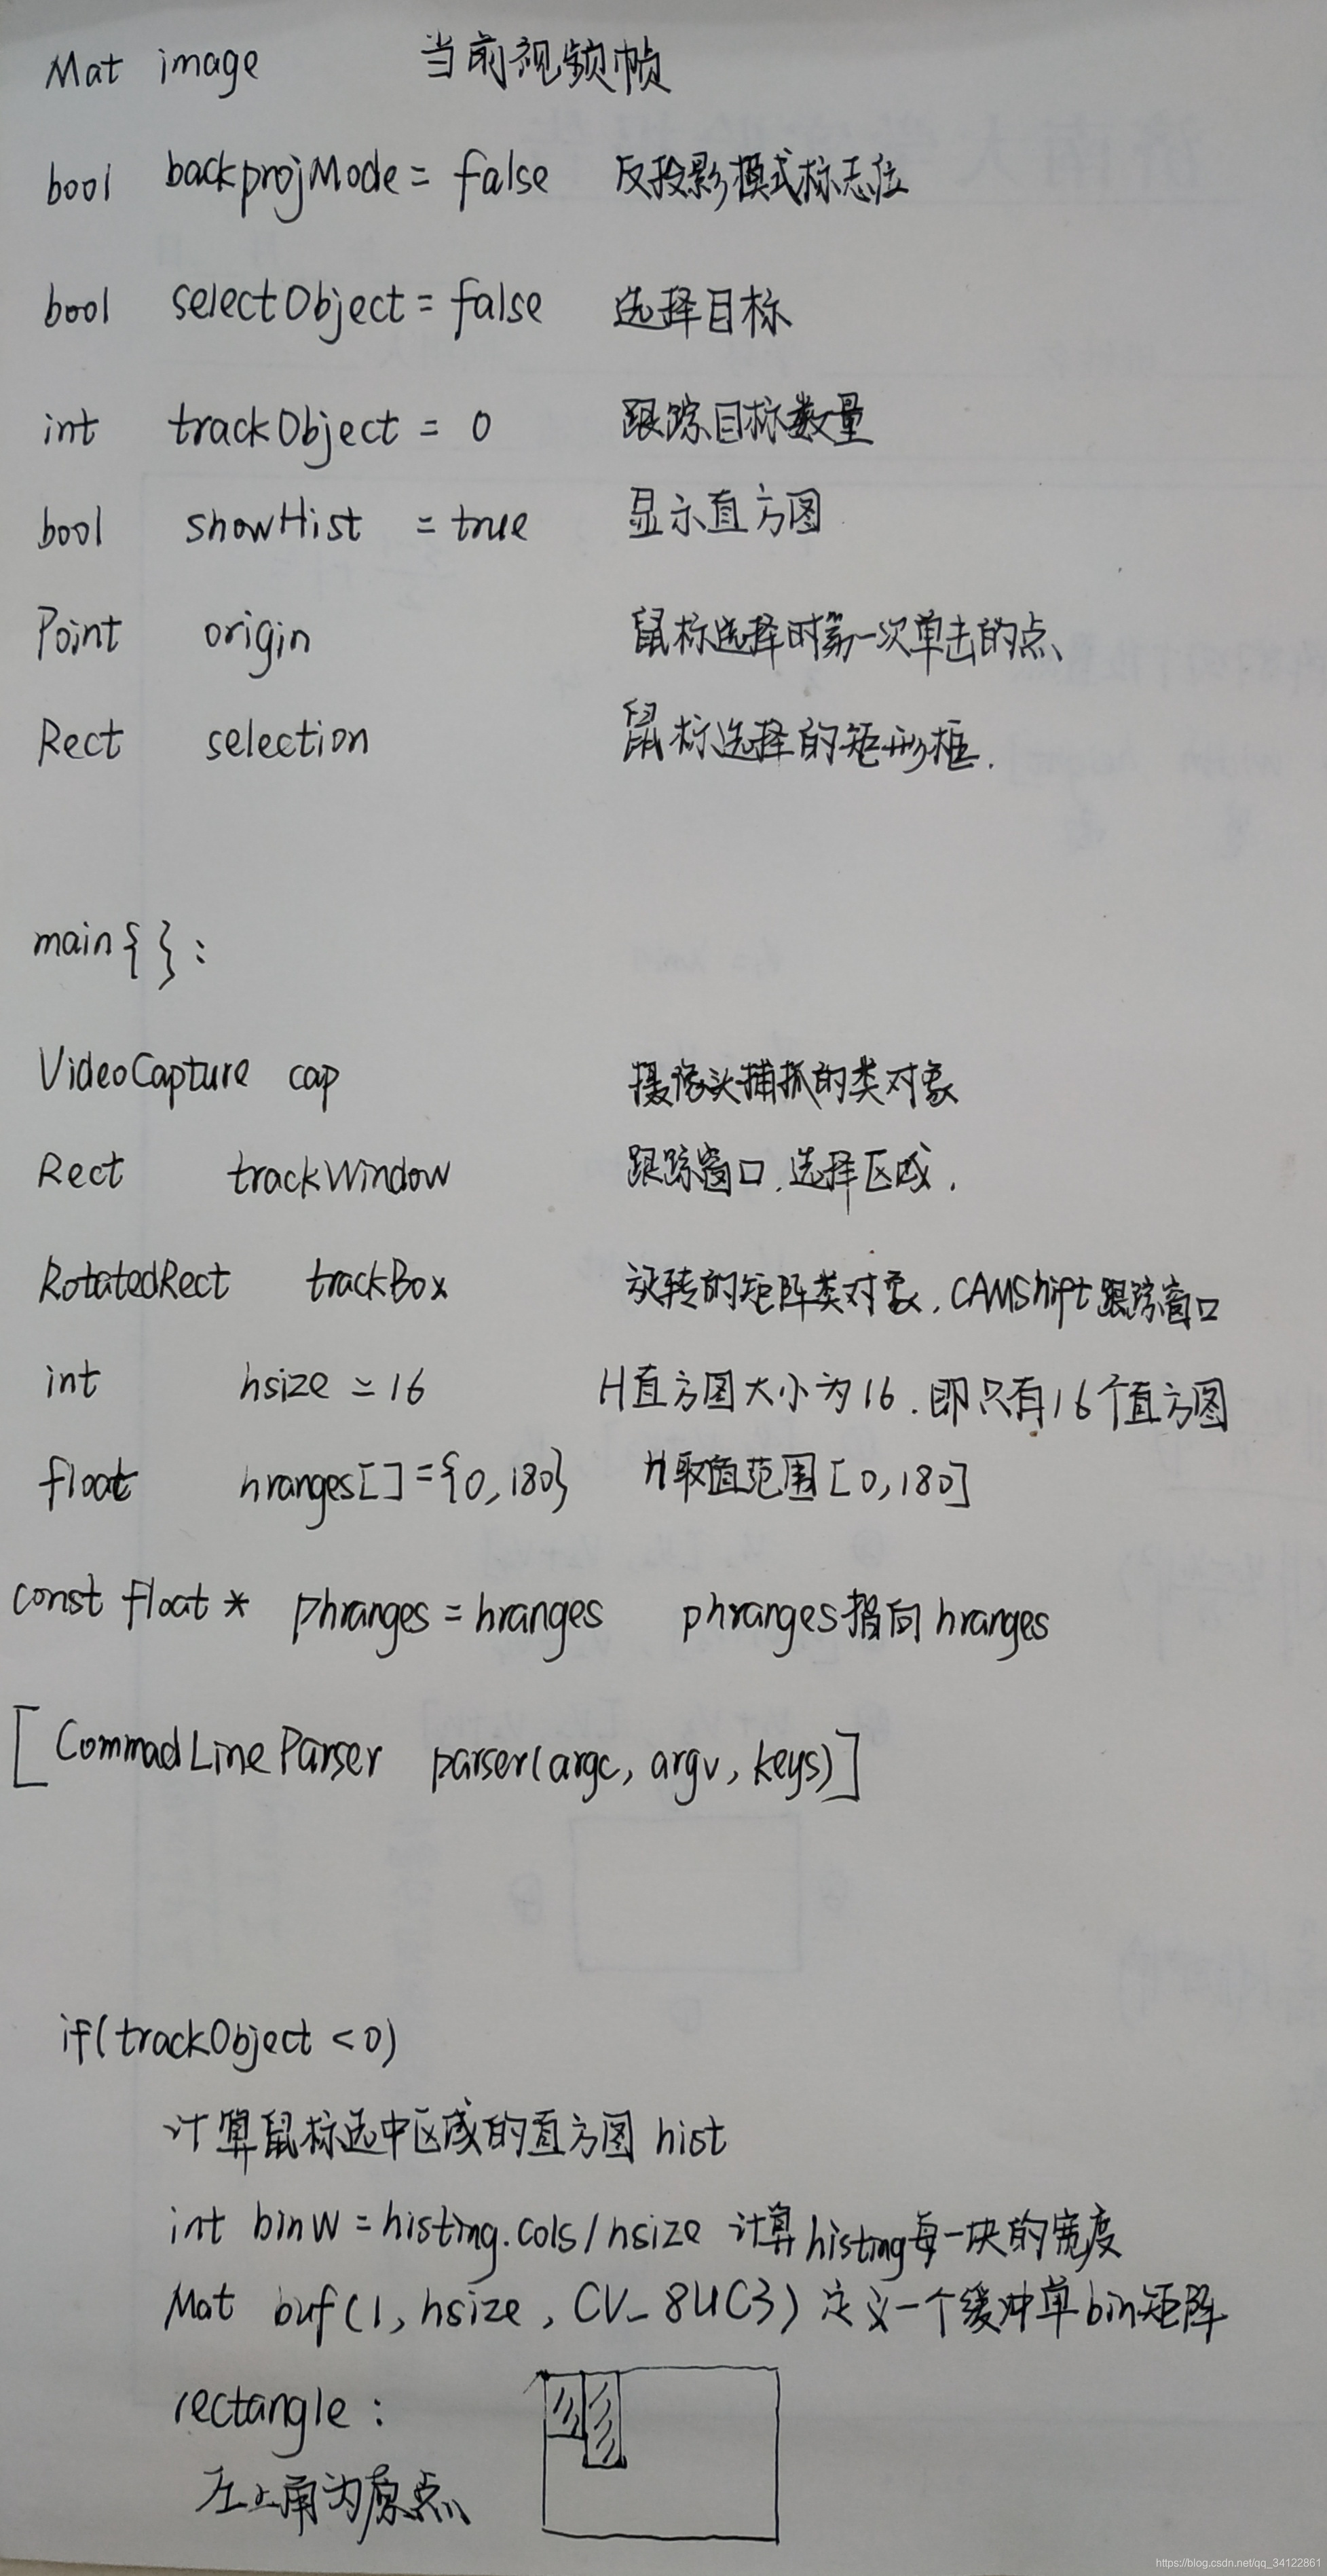 Mat image 当前视频帧
bool backprojMode = false 反投影模式标志位
bool selectObject = false 选择目标
int trackObject = 0 跟踪目标数量
bool showHist = true 显示直方图
Point origin 鼠标选择时第一次单击的点
Rect selection 鼠标选择的矩形框.
main{}:
VideoCapture cap 摄像头捕抓的类对象
Rect trackWindow 跟踪窗口,选择区域.
RotatedRect trackBox 旋转的矩阵类对象,CAMShift跟踪窗口
int hsize = 16 H直方图大小为16.即只有16个直方图
float hranges[] = {0,180} H取值范围[0,180]
const float* phranges = hranges phranges指向hranges
[CommadLineParser parser(argc, argv, keys)]
if(trackObject < 0)
计算鼠标选中区域的直方图 hist
int binW = histing.cols/hsize 计算histing每一块的宽度
Mat buf(1, hsize, CV_8UC3) 定义一个缓冲单bin矩阵
rectangle:
左上角为原点
https://blog.csdn.net/qq_34122861